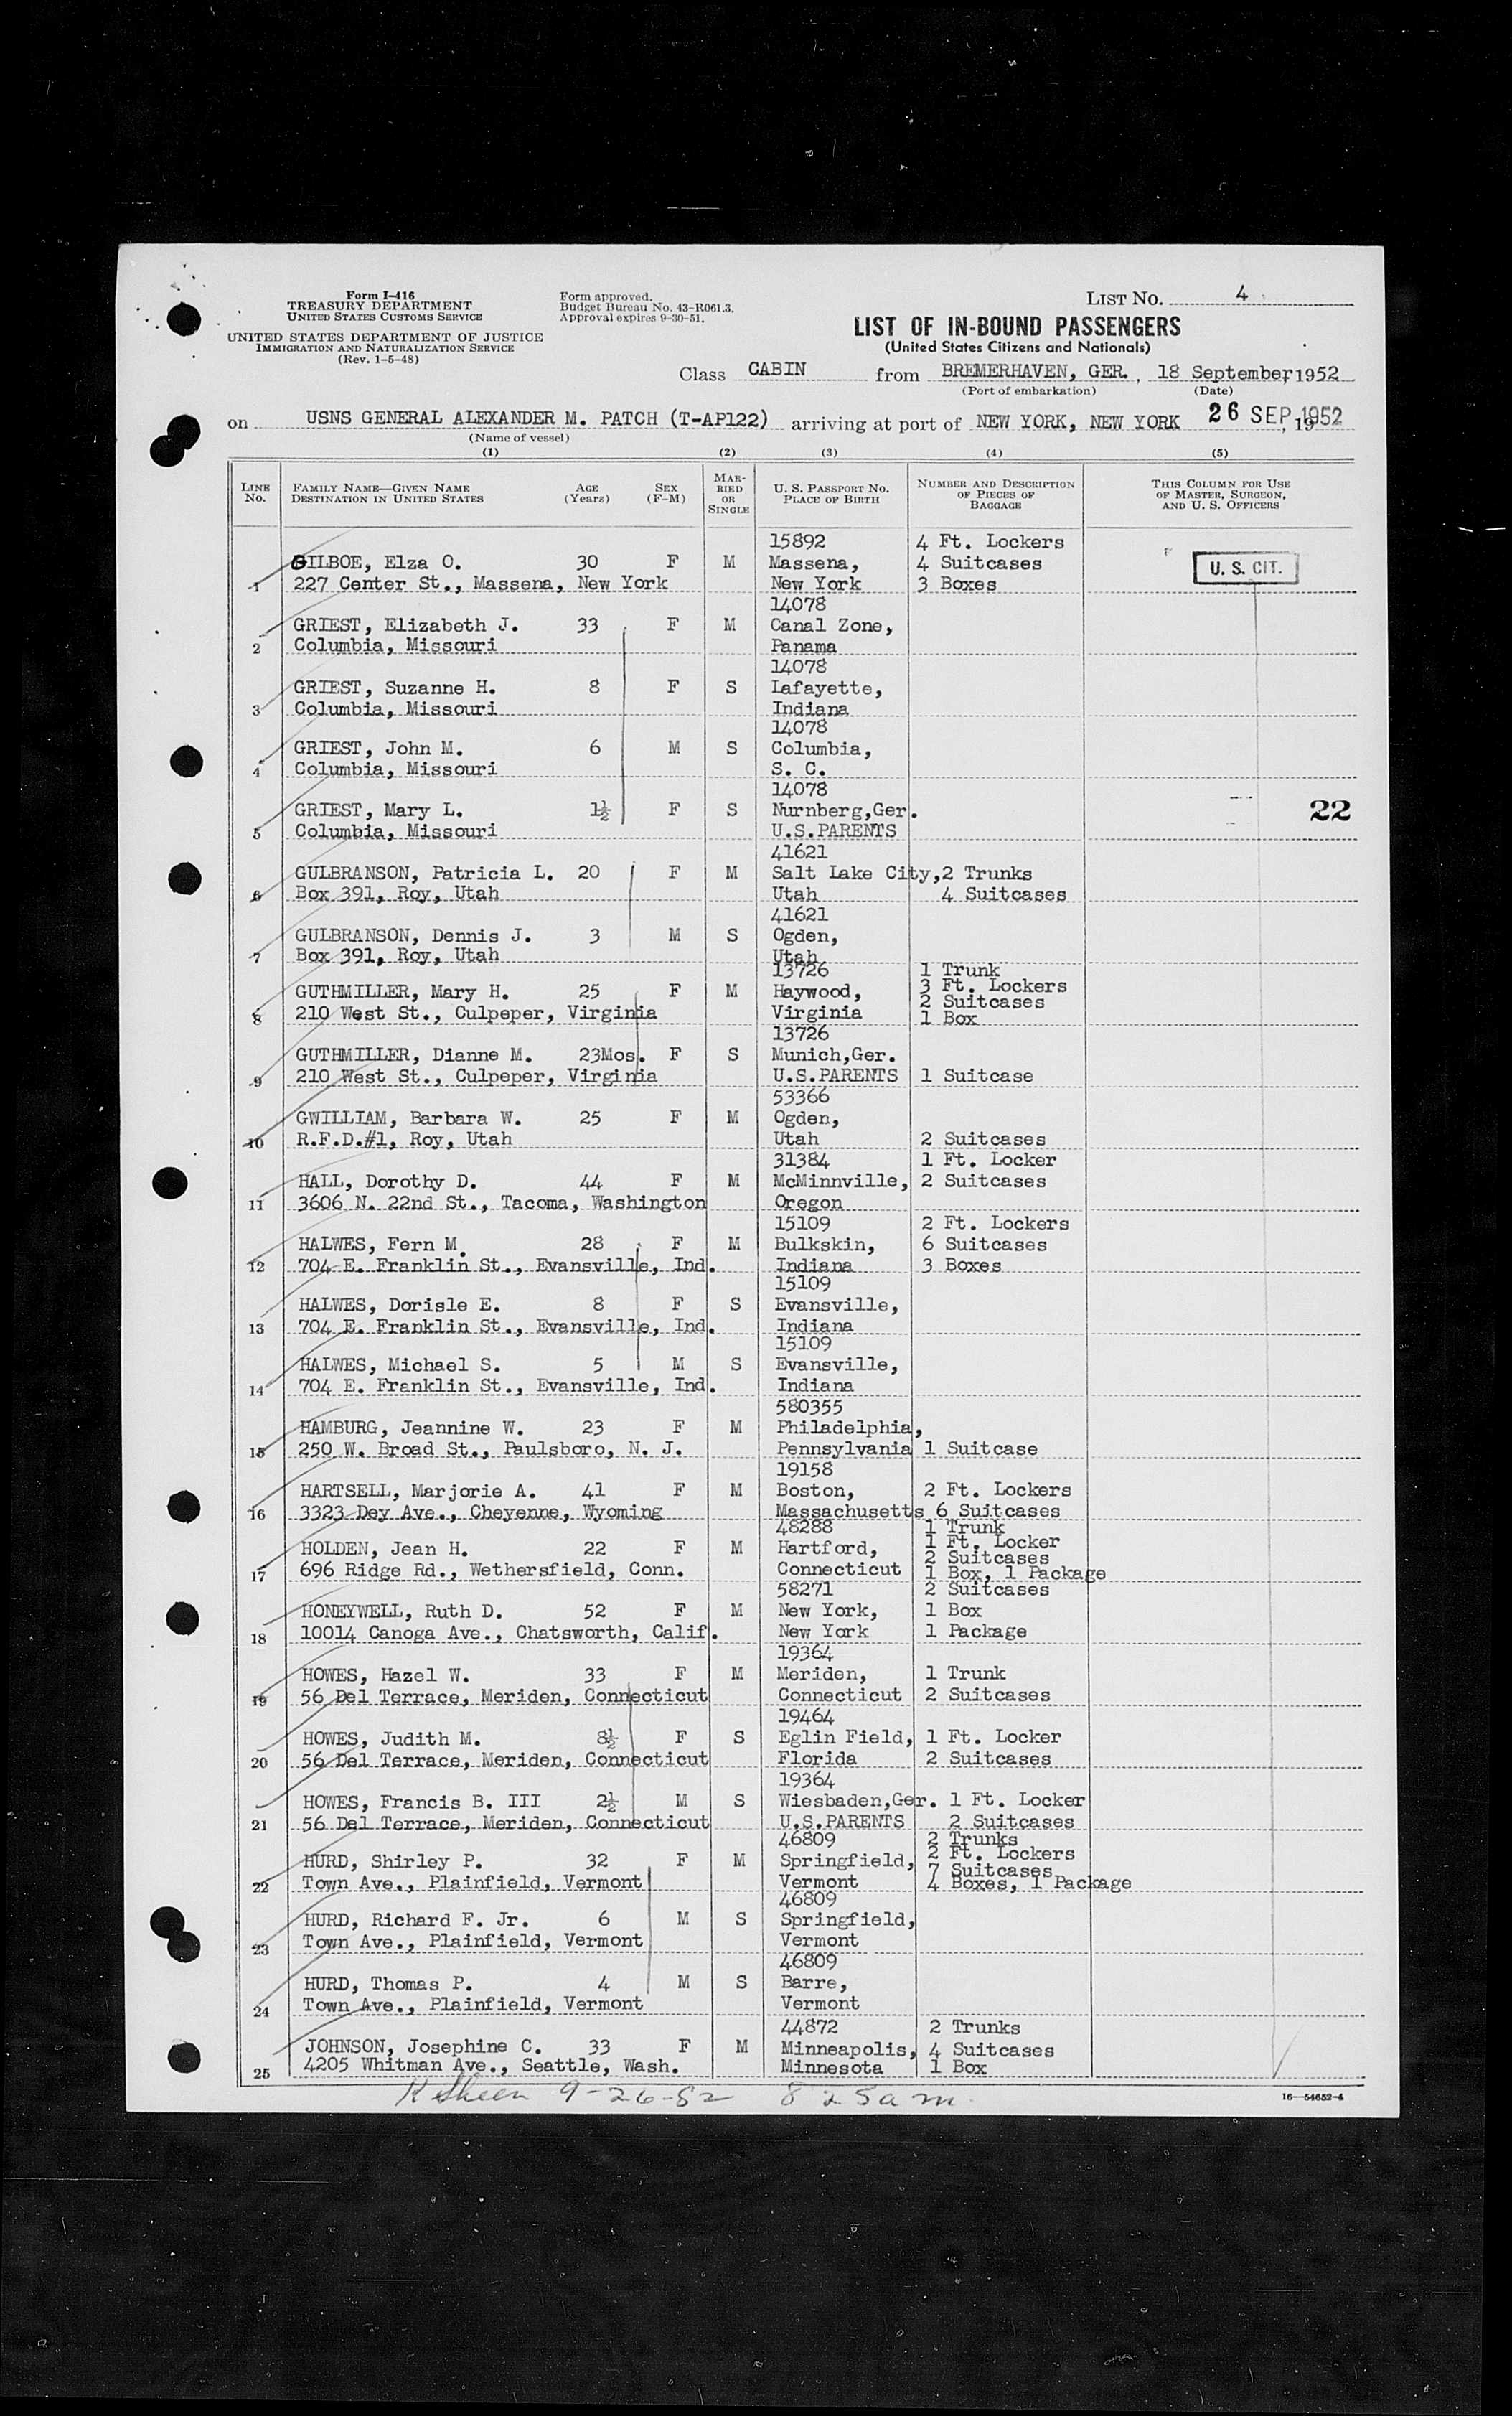 Form I-416
TREASURY DEPARTMENT
UNITED STATES CUSTOMS SERVICE
UNITED STATES DEPARTMENT OF JUSTICE
IMMIGRATION AND NATURALIZATION SERVICE
(Rev. 1-5-48)
Form approved.
Budget Bureau No. 43-R061.3.
Approval expires 9-30-51.
LIST No. 4
LIST OF IN-BOUND PASSENGERS
(United States Citizens and Nationals)
Class CABIN from BREMERHAVEN, GER., 18 September, 1952
(Port of embarkation) (Date)
on USNS GENERAL ALEXANDER M. PATCH (T-AP122) arriving at port of NEW YORK, NEW YORK 26 SEP 1952, 19
(Name of vessel)
(1) (2) (3) (4) (5)
LINE No. FAMILY NAME—GIVEN NAME DESTINATION IN UNITED STATES AGE (Years) SEX (F-M) MARRIED OR SINGLE U. S. PASSPORT NO. PLACE OF BIRTH NUMBER AND DESCRIPTION OF PIECES OF BAGGAGE THIS COLUMN FOR USE OF MASTER, SURGEON, AND U. S. OFFICERS
15892 4 Ft. Lockers
GILBOE, Elza O. 30 F M Massena, 4 Suitcases U. S. CIT.
1 227 Center St., Massena, New York New York 3 Boxes
14078
GRIEST, Elizabeth J. 33 F M Canal Zone,
2 Columbia, Missouri Panama
14078
GRIEST, Suzanne H. 8 F S Lafayette,
3 Columbia, Missouri Indiana
14078
GRIEST, John M. 6 M S Columbia,
4 Columbia, Missouri S. C.
14078
GRIEST, Mary L. 1½ F S Nurnberg,Ger. 22
5 Columbia, Missouri U.S.PARENTS
41621
GULBRANSON, Patricia L. 20 F M Salt Lake City, 2 Trunks
6 Box 391, Roy, Utah Utah 4 Suitcases
41621
GULBRANSON, Dennis J. 3 M S Ogden,
7 Box 391, Roy, Utah Utah
13726 1 Trunk
3 Ft. Lockers
GUTHMILLER, Mary H. 25 F M Haywood, 2 Suitcases
8 210 West St., Culpeper, Virginia Virginia 1 Box
13726
GUTHMILLER, Dianne M. 23Mos. F S Munich,Ger.
9 210 West St., Culpeper, Virginia U.S.PARENTS 1 Suitcase
53366
GWILLIAM, Barbara W. 25 F M Ogden,
10 R.F.D.#1, Roy, Utah Utah 2 Suitcases
31384 1 Ft. Locker
HALL, Dorothy D. 44 F M McMinnville, 2 Suitcases
11 3606 N. 22nd St., Tacoma, Washington Oregon
15109 2 Ft. Lockers
HALWES, Fern M. 28 F M Bulkskin, 6 Suitcases
12 704 E. Franklin St., Evansville, Ind. Indiana 3 Boxes
15109
HALWES, Dorisle E. 8 F S Evansville,
13 704 E. Franklin St., Evansville, Ind. Indiana
15109
HALWES, Michael S. 5 M S Evansville,
14 704 E. Franklin St., Evansville, Ind. Indiana
580355
HAMBURG, Jeannine W. 23 F M Philadelphia,
15 250 W. Broad St., Paulsboro, N. J. Pennsylvania 1 Suitcase
19158
HARTSELL, Marjorie A. 41 F M Boston, 2 Ft. Lockers
16 3323 Dey Ave., Cheyenne, Wyoming Massachusetts 6 Suitcases
48288 1 Trunk
1 Ft. Locker
HOLDEN, Jean H. 22 F M Hartford, 2 Suitcases
17 696 Ridge Rd., Wethersfield, Conn. Connecticut 1 Box, 1 Package
58271 2 Suitcases
HONEYWELL, Ruth D. 52 F M New York, 1 Box
18 10014 Canoga Ave., Chatsworth, Calif. New York 1 Package
19364
HOWES, Hazel W. 33 F M Meriden, 1 Trunk
19 56 Del Terrace, Meriden, Connecticut Connecticut 2 Suitcases
19464
HOWES, Judith M. 8½ F S Eglin Field, 1 Ft. Locker
20 56 Del Terrace, Meriden, Connecticut Florida 2 Suitcases
19364
HOWES, Francis B. III 2½ M S Wiesbaden,Ger. 1 Ft. Locker
21 56 Del Terrace, Meriden, Connecticut U.S.PARENTS 2 Suitcases
46809 2 Trunks
2 Ft. Lockers
HURD, Shirley P. 32 F M Springfield, 7 Suitcases
22 Town Ave., Plainfield, Vermont Vermont 4 Boxes, 1 Package
46809
HURD, Richard F. Jr. 6 M S Springfield,
23 Town Ave., Plainfield, Vermont Vermont
46809
HURD, Thomas P. 4 M S Barre,
24 Town Ave., Plainfield, Vermont Vermont
44872 2 Trunks
JOHNSON, Josephine C. 33 F M Minneapolis, 4 Suitcases
25 4205 Whitman Ave., Seattle, Wash. Minnesota 1 Box
K Sheen 9-26-52 8 25 a m
16—54652-4